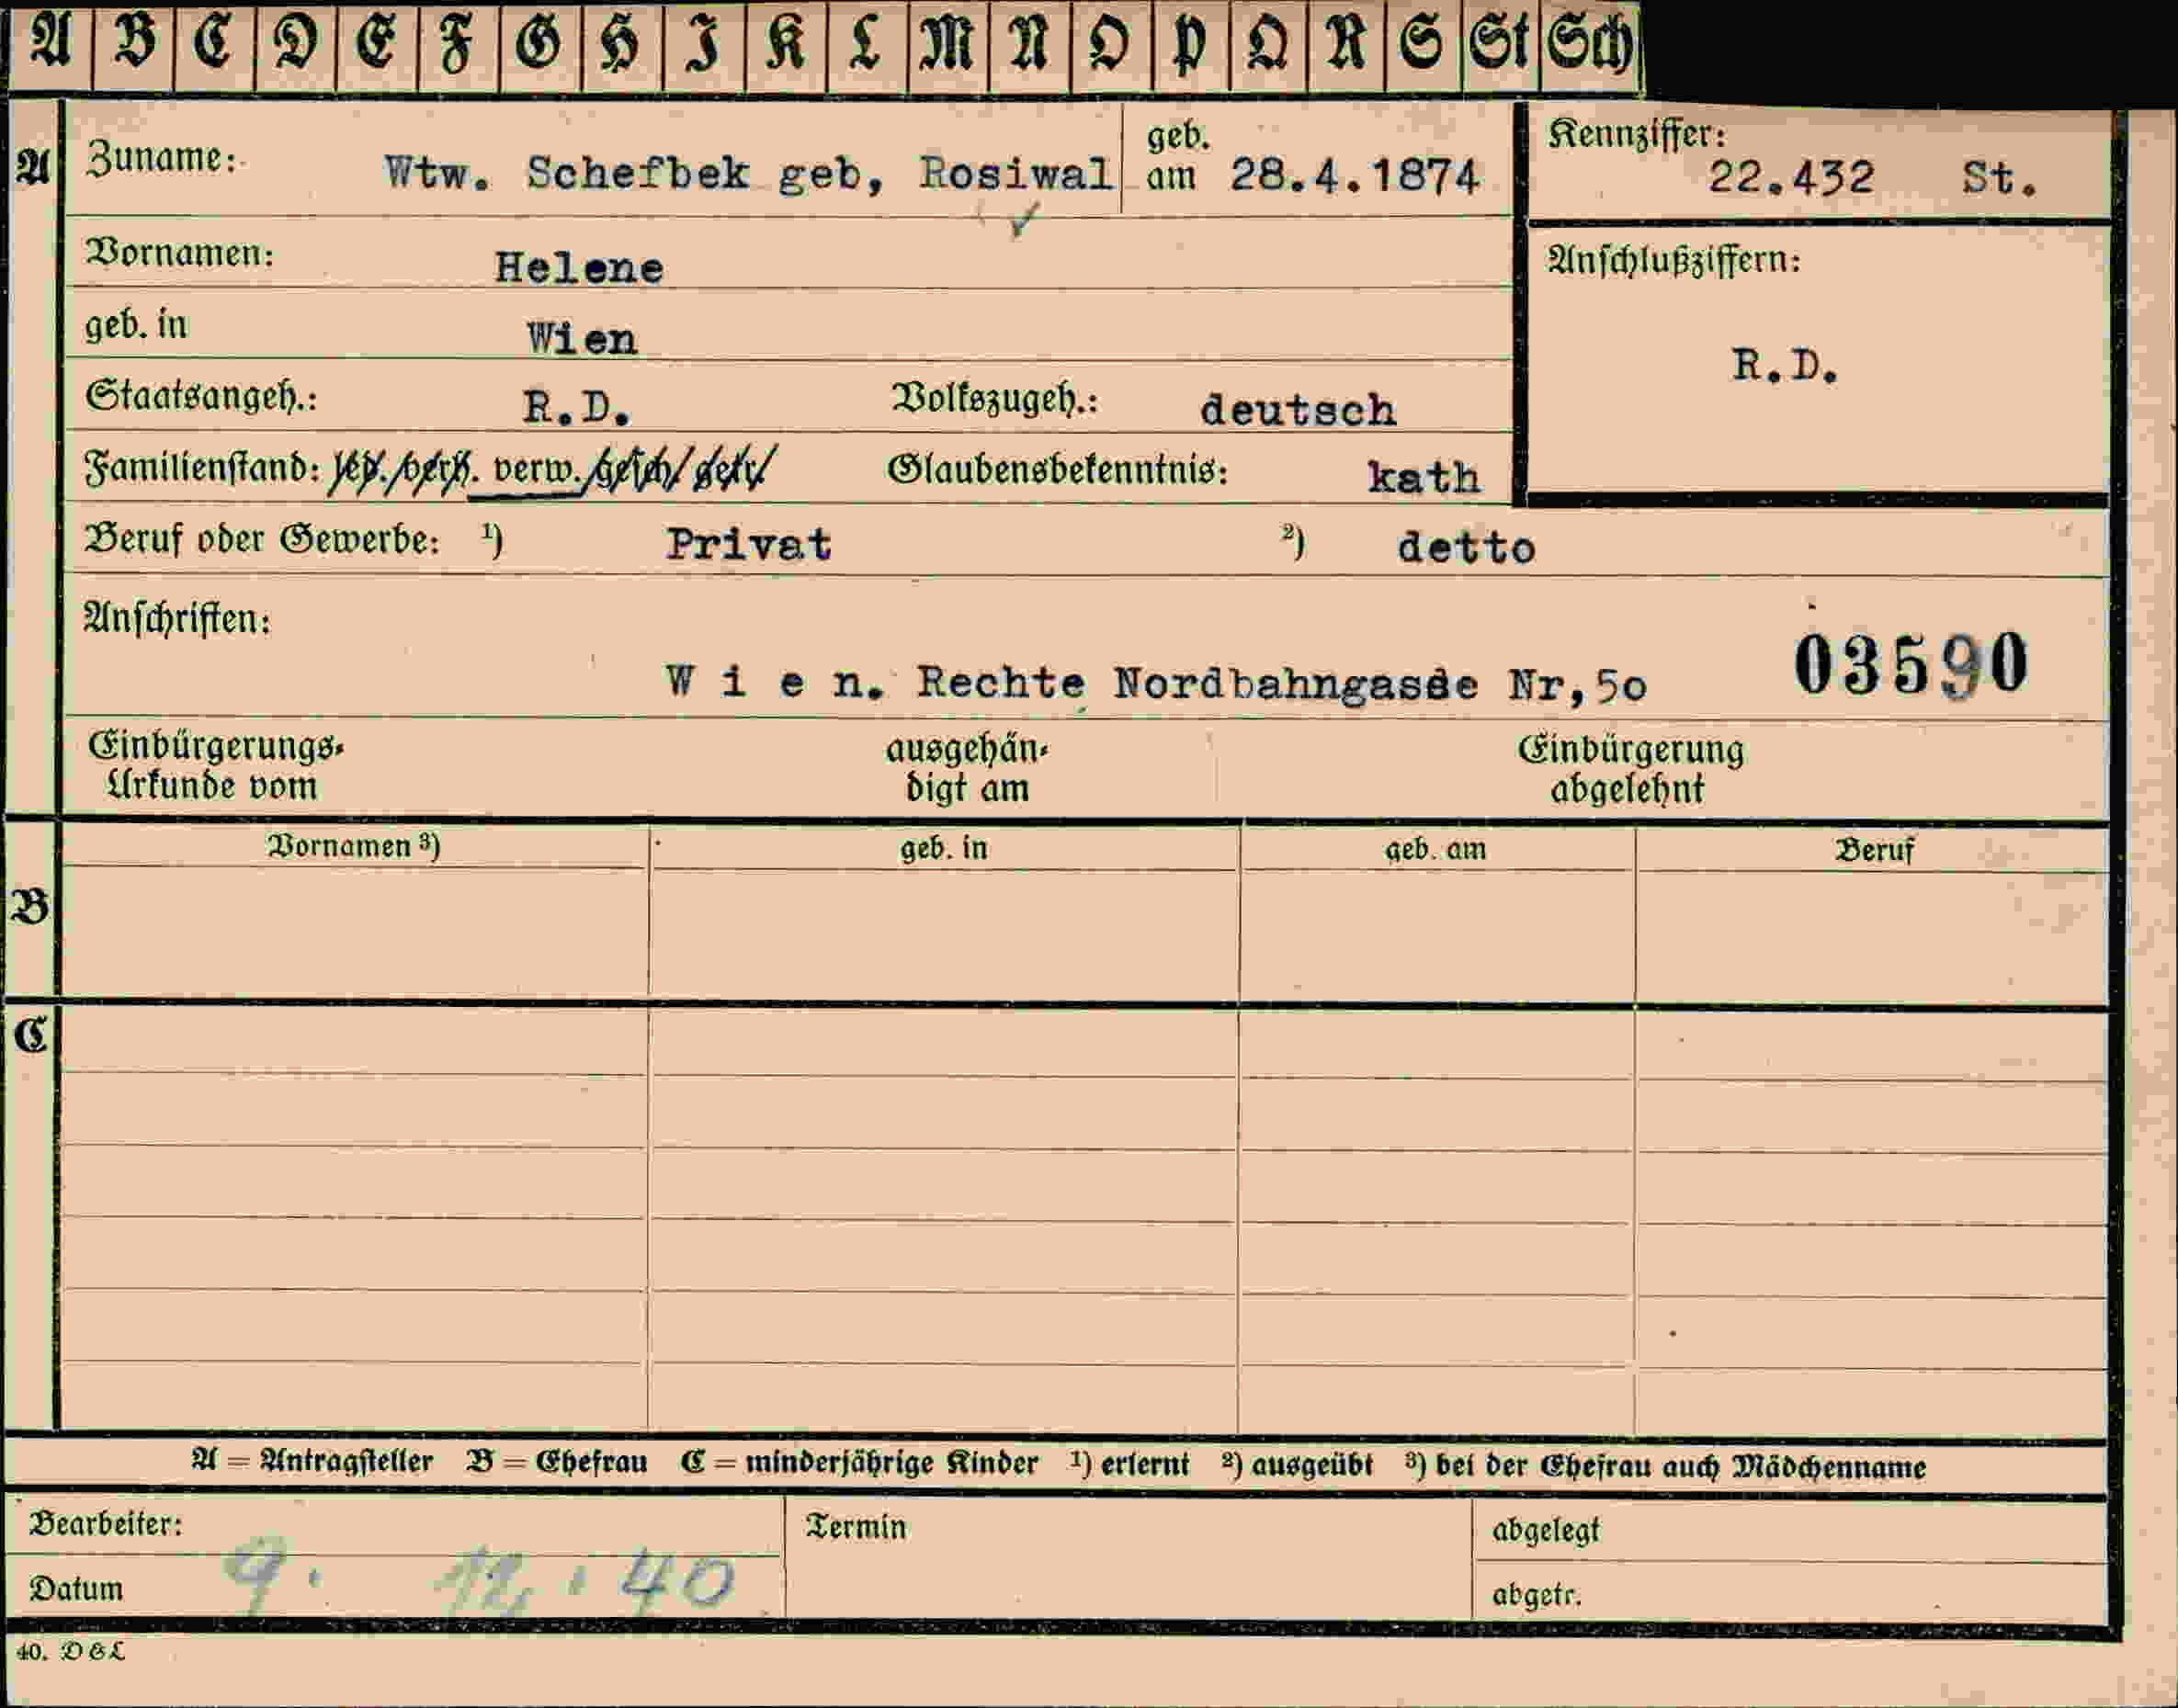 A B C D E F G H I K L M N O P Q R S St Sch
A Zuname: Wtw. Schefbek geb, Rosiwal geb. am 28.4.1874 Kennziffer: 22.432 St.
Vornamen: Helene Anschlußziffern:
geb. in Wien R.D.
Staatsangeh.: R.D. Volkszugeh.: deutsch
Familienstand: led. verh. verw. gesch. getr. Glaubensbekenntnis: kath
Beruf oder Gewerbe: ¹) Privat ²) detto
Anschriften:
W i e n. Rechte Nordbahngasse Nr,5o 03590
Einbürgerungs- ausgehän- Einbürgerung
Urkunde vom digt am abgelehnt
Vornamen ³) geb. in geb. am Beruf
B
C
A = Antragsteller B = Ehefrau C = minderjährige Kinder ¹) erlernt ²) ausgeübt ³) bei der Ehefrau auch Mädchenname
Bearbeiter: Termin abgelegt
Datum 9. 12. 40 abgetr.
40. D & L